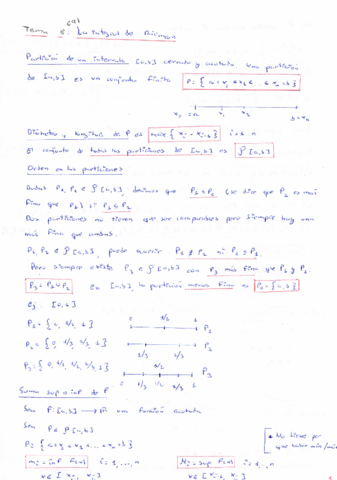 Tema 8: La integral de Riemann
Partición de un intervalo [a,b] cerrado y acotado. Una partición
de [a,b] es un conjunto finito P = { a = x₀ < x₁ < ... < xₙ = b }
x₀ = a x₁ x₂ b = xₙ
Diámetro y longitud de P es max { xᵢ - xᵢ₋₁ }
El conjunto de todas las particiones de [a,b] es P[a,b]
Orden en las particiones
Dadas P₁, P₂ ∈ P[a,b] decimos que P₁ ≤ P₂ (se dice que P₂ es más
fina que P₁) si P₁ ⊆ P₂
Dos particiones no tienen que ser comparables pero siempre hay una
más fina que ambas.
P₁, P₂ ∈ P[a,b], puede ocurrir P₁ ≰ P₂ ni P₂ ≤ P₁.
Pero siempre existe P₃ ∈ P[a,b] con P₃ más fina que P₁ y P₂.
P₃ = P₁ ∪ P₂ En [a,b], la partición menos fina es P₀ = {a, b}
ej. [0,1]
P₁ = {0, 1/2, 1} 0 1/2 1 P₁
P₂ = {0, 1/3, 2/3, 1} 1/3 2/3 P₂
P₃ = {0, 1/3, 1/2, 2/3, 1} 0 1/2 1 P₃
1/3 2/3
Suma sup o inf de P
Sea f: [a,b] → ℝ una función acotada
Sea P ∈ P[a,b]
P = { a = x₀ < x₁ < ... < xₙ = b }
mᵢ = inf f(x) i = 1, ..., n Mᵢ = sup f(x) i = 1, ..., n
x ∈ [xᵢ₋₁, xᵢ] x ∈ [xᵢ₋₁, xᵢ]
* No tiene por
que haber min/máx